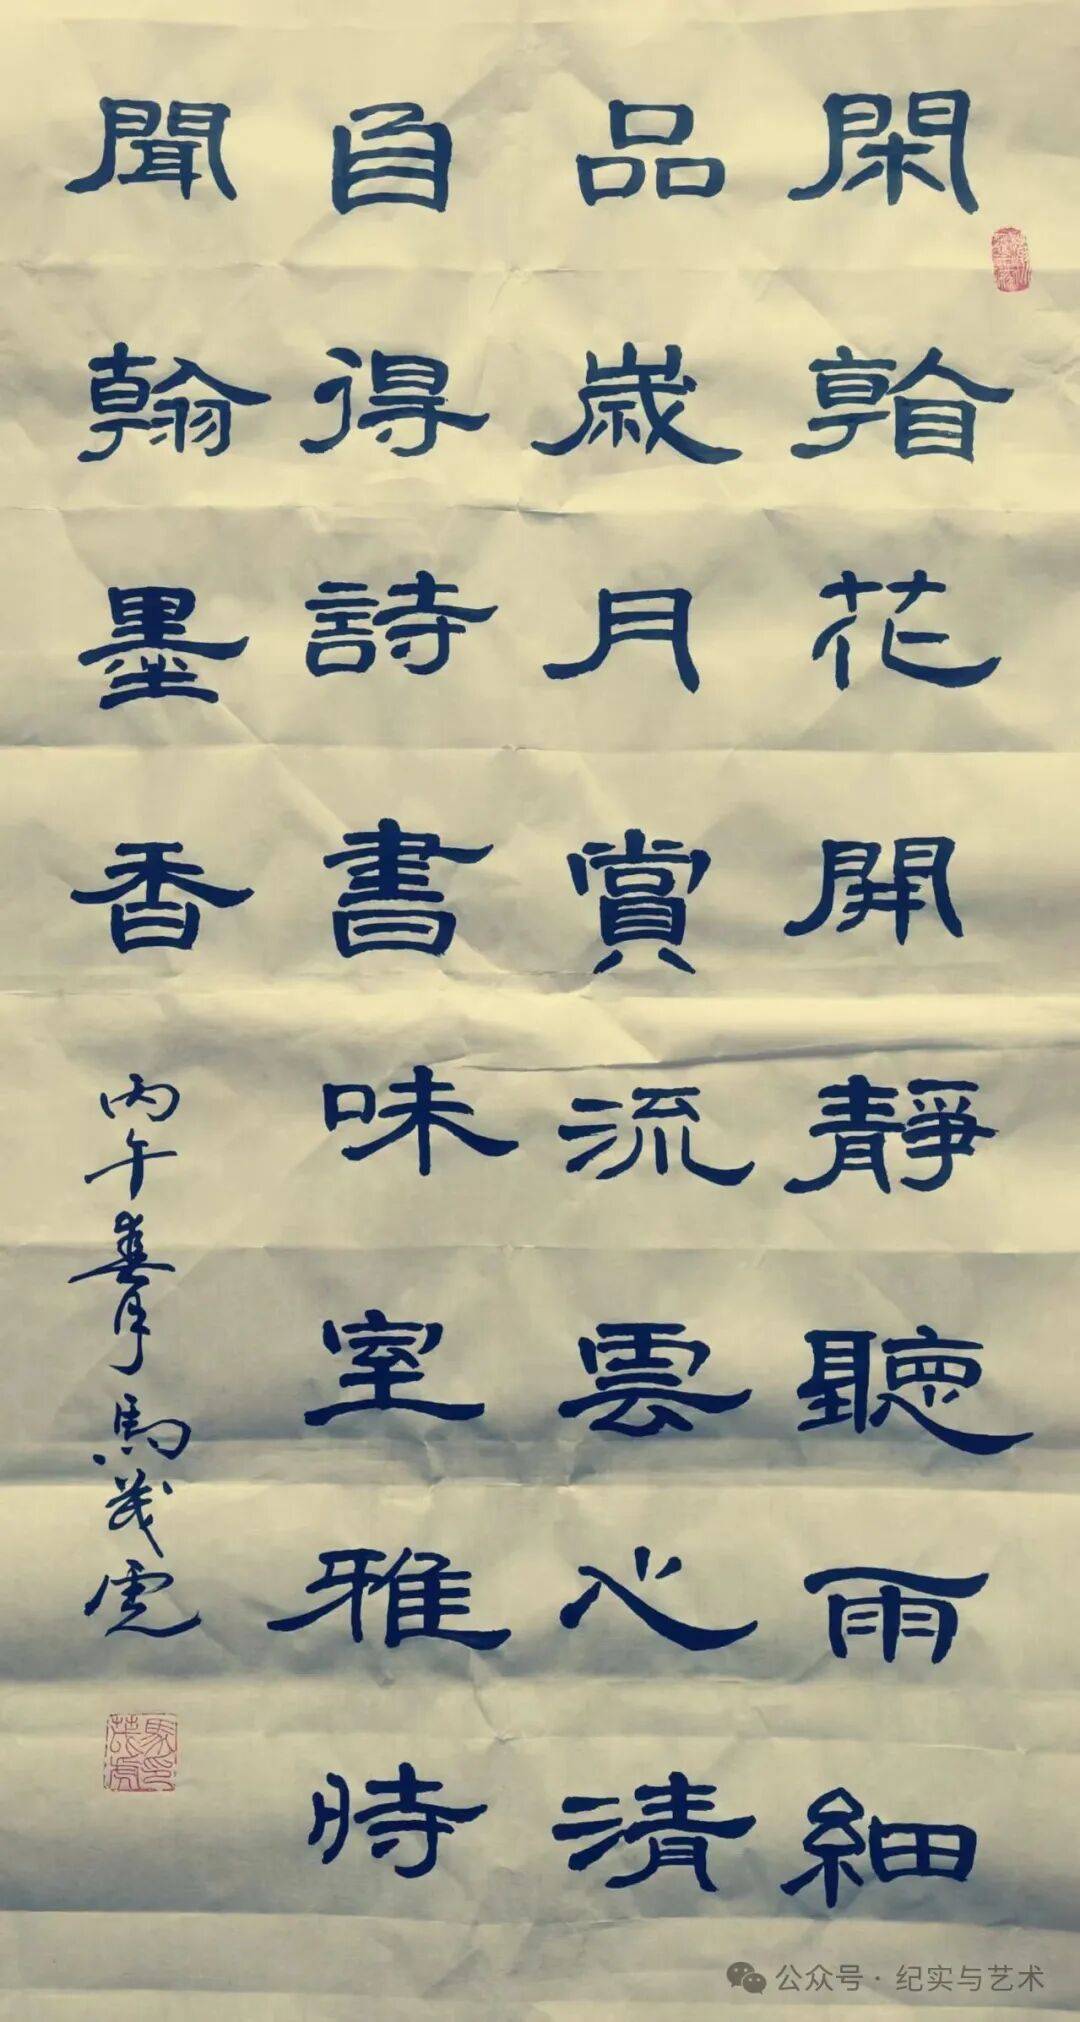 閑看花開靜聽雨細
品歲月賞流雲心清
自得詩書味室雅時
聞翰墨香
丙午春月馬茂虎
公众号·纪实与艺术